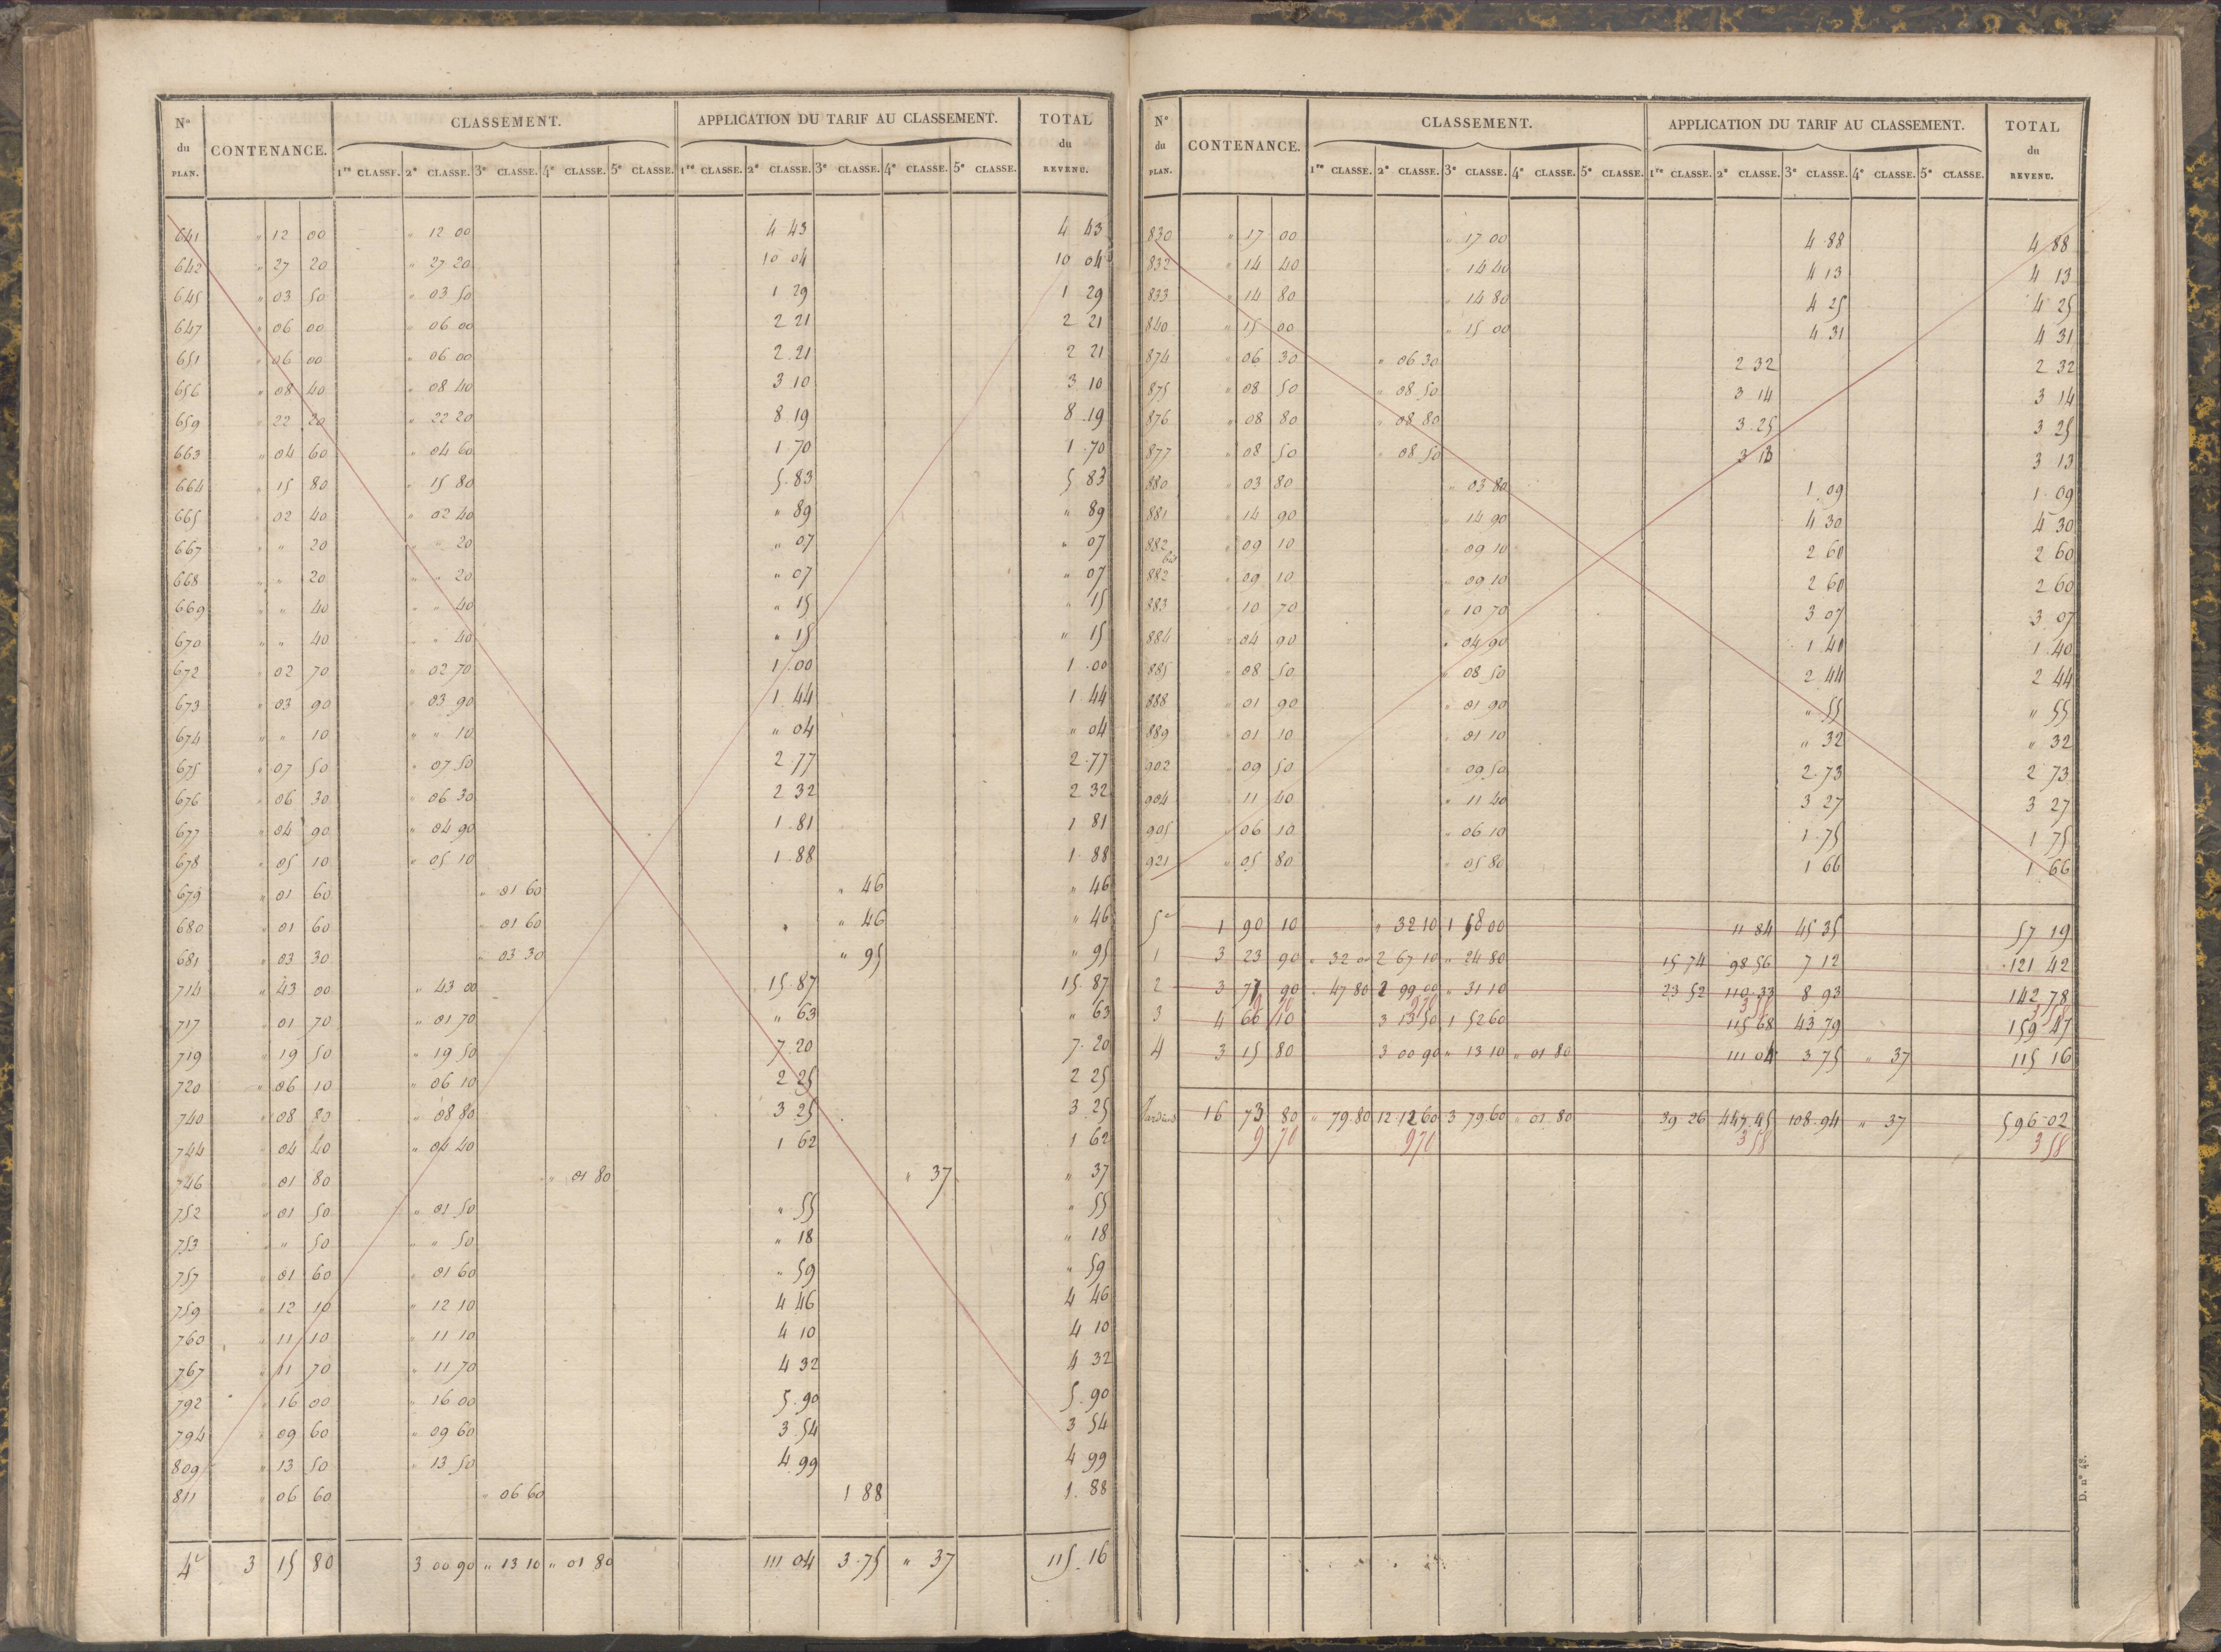 Nos du PLAN. CONTENANCE. CLASSEMENT. APPLICATION DU TARIF AU CLASSEMENT. TOTAL du REVENU.
1re CLASSE. 2e CLASSE. 3e CLASSE. 4e CLASSE. 5e CLASSE. 1re CLASSE. 2e CLASSE. 3e CLASSE. 4e CLASSE. 5e CLASSE.
641 " 12 00 " 12 00 4 43 4 43
642 " 27 20 " 27 20 10 04 10 04
645 " 03 50 " 03 50 1 29 1 29
647 " 06 00 " 06 00 2 21 2 21
651 " 06 00 " 06 00 2.21 2 21
656 " 08 40 " 08 40 3 10 3 10
659 " 22 20 " 22 20 8 19 8.19
663 " 04 60 " 04 60 1 70 1.70
664 " 15 80 " 15 80 5.83 5 83
665 " 02 40 " 02 40 " 89 " 89
667 " " 20 " " 20 " 07 " 07
668 " " 20 " " 20 " 07 " 07
669 " " 40 " " 40 " 15 " 15
670 " " 40 " " 40 " 15 " 15
672 " 02 70 " 02 70 1.00 1.00
673 " 03 90 " 03 90 1 44 1.44
674 " " 10 " " 10 " 04 " 04
675 " 07 50 " 07 50 2 77 2.77
676 " 06 30 " 06 30 2 32 2 32
677 " 04 90 " 04 90 1.81 1 81
678 " 05 10 " 05 10 1.88 1.88
679 " 01 60 " 01 60 " 46 " 46
680 " 01 60 " 01 60 " 46 " 46
681 " 03 30 " 03 30 " 95 " 95
714 " 43 00 " 43 00 15.87 15.87
717 " 01 70 " 01 70 " 63 " 63
719 " 19 50 " 19 50 7.20 7.20
720 " 06 10 " 06 10 2 25 2 25
740 " 08 80 " 08 80 3 25 3.25
744 " 04 40 " 04 40 1 62 1 62
746 " 01 80 " 01 80 " 37 " 37
752 " 01 50 " 01 50 " 55 " 55
753 " " 50 " " 50 " 18 " 18
757 " 01 60 " 01 60 " 59 " 59
759 " 12 10 " 12 10 4 46 4 46
760 " 11 10 " 11 10 4 10 4 10
767 " 11 70 " 11 70 4 32 4 32
792 " 16 00 " 16 00 5.90 5.90
794 " 09 60 " 09 60 3.54 3 54
809 " 13 50 " 13 50 4.99 4 99
811 " 06 60 " 06 60 1 88 1.88
4e 3 15 80 3 00 90 " 13 10 " 01 80 111 04 3.75 " 37 115.16
Nos du PLAN. CONTENANCE. CLASSEMENT. APPLICATION DU TARIF AU CLASSEMENT. TOTAL du REVENU.
1re CLASSE. 2e CLASSE. 3e CLASSE. 4e CLASSE. 5e CLASSE. 1re CLASSE. 2e CLASSE. 3e CLASSE. 4e CLASSE. 5e CLASSE.
830 " 17 00 " 17 00 4.88 4 88
832 " 14 40 " 14 40 4 13 4 13
833 " 14 80 " 14 80 4 25 4 25
840 " 15 00 " 15 00 4 31 4 31
874 " 06 30 " 06 30 2 32 2 32
875 " 08 50 " 08 50 3 14 3 14
876 " 08 80 " 08 80 3.25 3 25
877 " 08 50 " 08 50 3 13 3 13
880 " 03 80 " 03 80 1.09 1.09
881 " 14 90 " 14 90 4 30 4 30
882 " 09 10 " 09 10 2 60 2 60
882 bis " 09 10 " 09 10 2 60 2 60
883 " 10 70 " 10 70 3 07 3 07
884 " 04 90 " 04 90 1 40 1.40
885 " 08 50 " 08 50 2 44 2 44
888 " 01 90 " 01 90 " 55 " 55
889 " 01 10 " 01 10 " 32 " 32
902 " 09 50 " 09 50 2.73 2 73
904 " 11 40 " 11 40 3 27 3 27
905 " 06 10 " 06 10 1.75 1 75
921 " 05 80 " 05 80 1 66 1 66
5e 1 90 10 " 32 10 1 58 00 11 84 45 35 57 19
1 3 23 90 " 32 00 2 67 10 " 24 80 15 74 98 56 7 12 121 42
2 3 77 90 " 47 80 2 99 00 " 31 10 23 52 110.33 8 93 142 78
9 70 970 3 58 3 58
3 4 66 10 3 13 50 1 52 60 115 68 43 79 159 47
4 3 15 80 3 00 90 " 13 10 " 01 80 111 04 3 75 " 37 115 16
Jardins 16 73 80 " 79.80 12 12 60 3 79.60 " 01.80 39 26 447.45 108.94 " 37 596-02
9 70 970 358 358
D. n° 48.